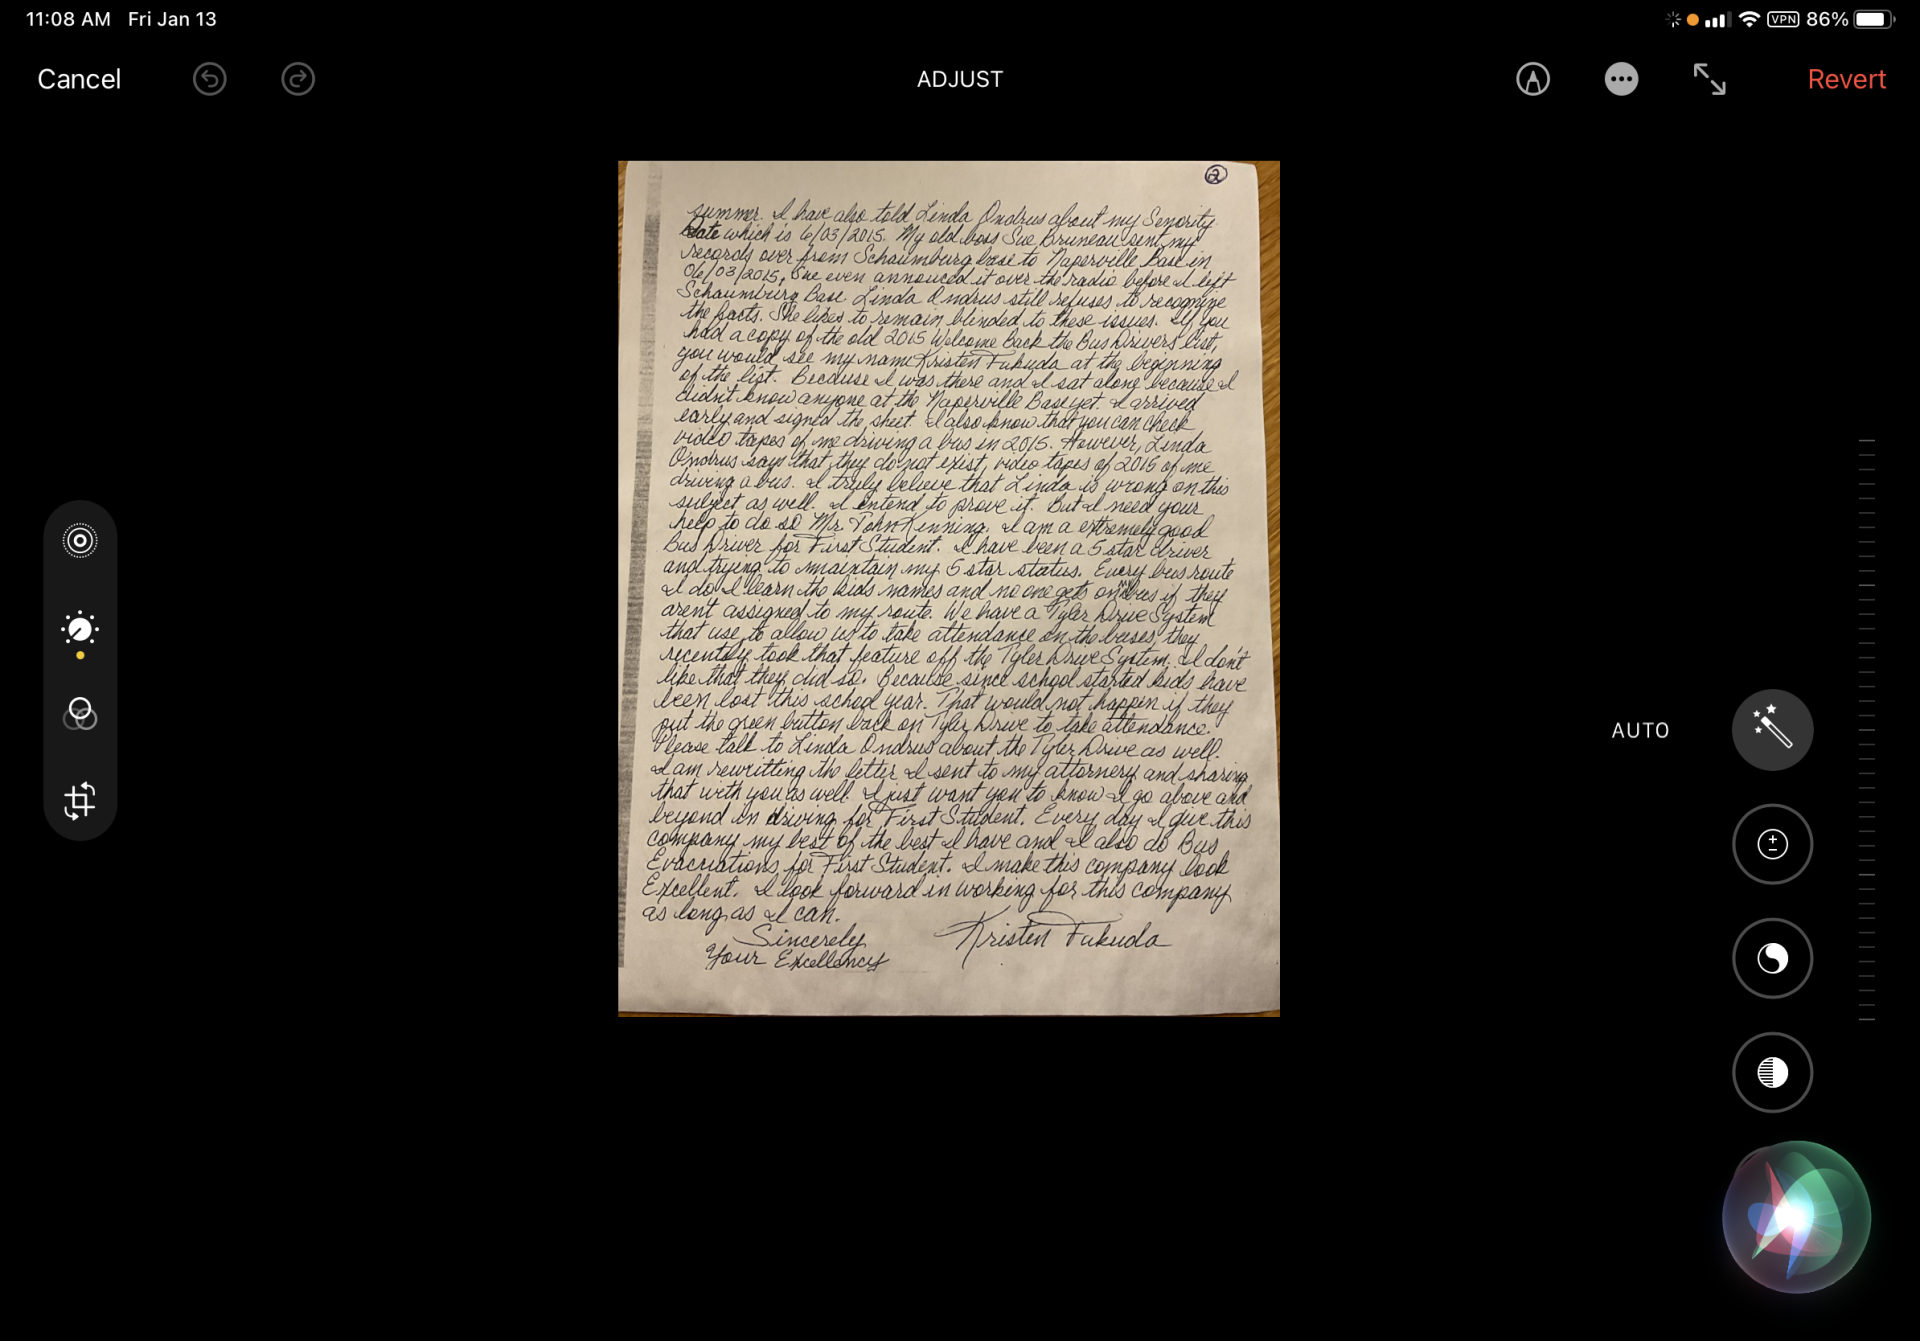 11:08 AM Fri Jan 13
VPN 86%
Cancel
ADJUST
Revert
2
summer. I have also told Linda Ondrus about my Senority
Date which is 6/03/2015. My old boss Sue Bruneau sent my
records over from Schaumburg base to Naperville Base in
06/03/2015, She even annouced it over the radio before I left
Schaumburg Base. Linda Ondrus still refuses to recognize
the facts. She likes to remain blinded to these issues. If you
had a copy of the old 2015 Welcome Back the Bus Drivers list,
you would see my name Kristen Fukuda at the beginning
of the list. Because I was there and I sat alone because I
didn't know anyone at the Naperville Base yet. I arrived
early and signed the sheet. I also know that you can check
video tapes of me driving a bus in 2015. However, Linda
Ondrus says that they do not exist, video tapes of 2015 of me
driving a bus. I truly believe that Linda is wrong on this
subject as well. I entend to prove it. But I need your
help to do so Mr. John Kenning. I am a extremely good
Bus Driver for First Student. I have been a 5 star driver
and trying to maintain my 5 star status. Every bus route
I do I learn the kids names and no one gets on my bus if they
aren't assigned to my route. We have a Tyler Drive System
that use to allow us to take attendance on the buses, they
recently took that feature off the Tyler Drive System. I don't
like that they did so. Because since school started kids have
been lost this school year. That would not happen if they
put the green button back on Tyler Drive to take attendance.
Please talk to Linda Ondrus about the Tyler Drive as well.
I am rewritting the letter I sent to my attornery and sharing
that with you as well. I just want you to know I go above and
beyond in driving for First Student. Every day I give this
company my best of the best I have and I also do Bus
Evacuations for First Student. I make this company look
Excellent. I look forward in working for this company
as long as I can.
Sincerely Kristen Fukuda
Your Excellency
AUTO